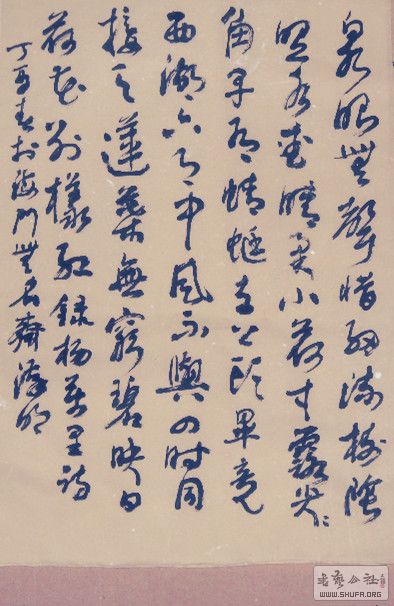 泉眼無聲惜細流樹陰
照水愛晴柔小荷才露尖々
角早有蜻蜓立上頭畢竟
西湖六月中風不與四時同
接天蓮葉無窮碧映日
荷花別樣紅錄楊萬里詩
丁亥春於海門無名齋
書藝公社
WWW.SHUFA.ORG